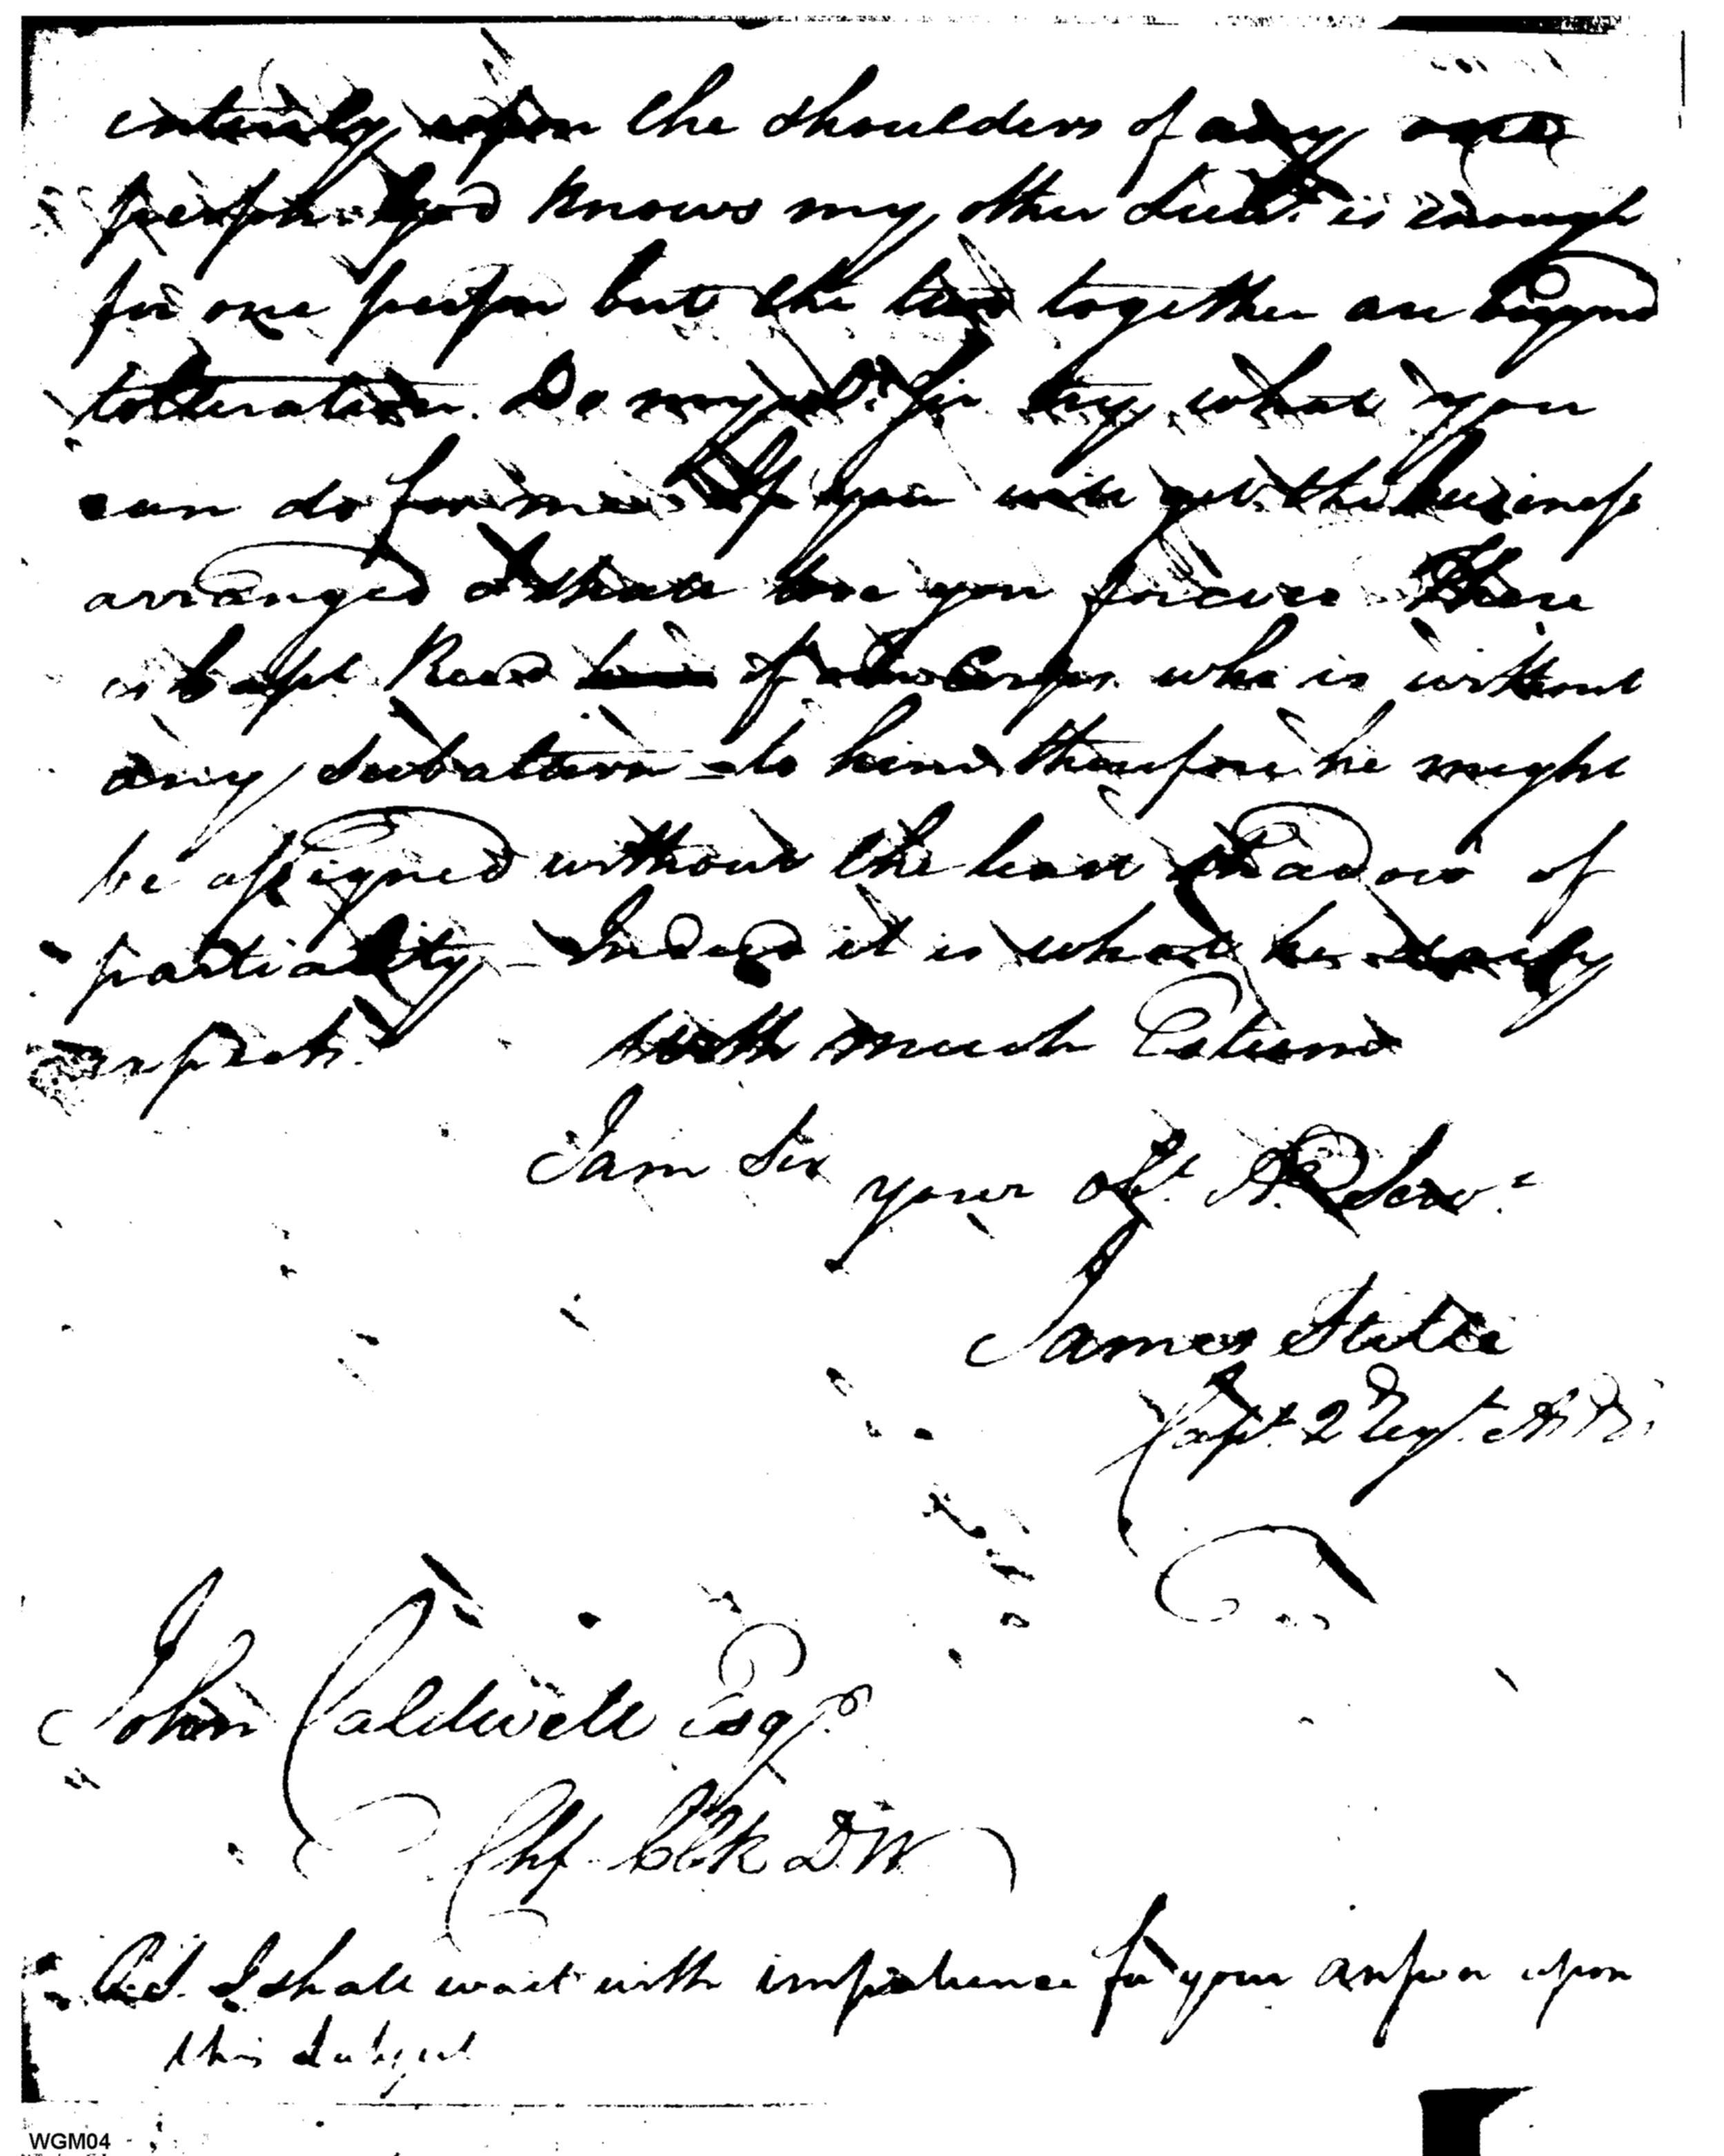 entirely upon the shoulders of any one
people. God knows my other Lieut. is enough
for one person but the two together are beyond
tolleration. Do my dr. Sir try what you
can do for me. If you will get the business
arranged I shall love you forever. There
is Capt. Read of Corps who is without
any subaltern to him therefore he might
be assigned without the least shadow of
partiality – Indeed it is what he
expects. With much Esteem
I am Sir
your obt. H. Serv.
James Stille
Capt. 2 Regt. A&E
John Caldwell Esqr.
Chf. Clk D.W
P.S. I shall wait with impatience for your answer upon
this subject
WGM04